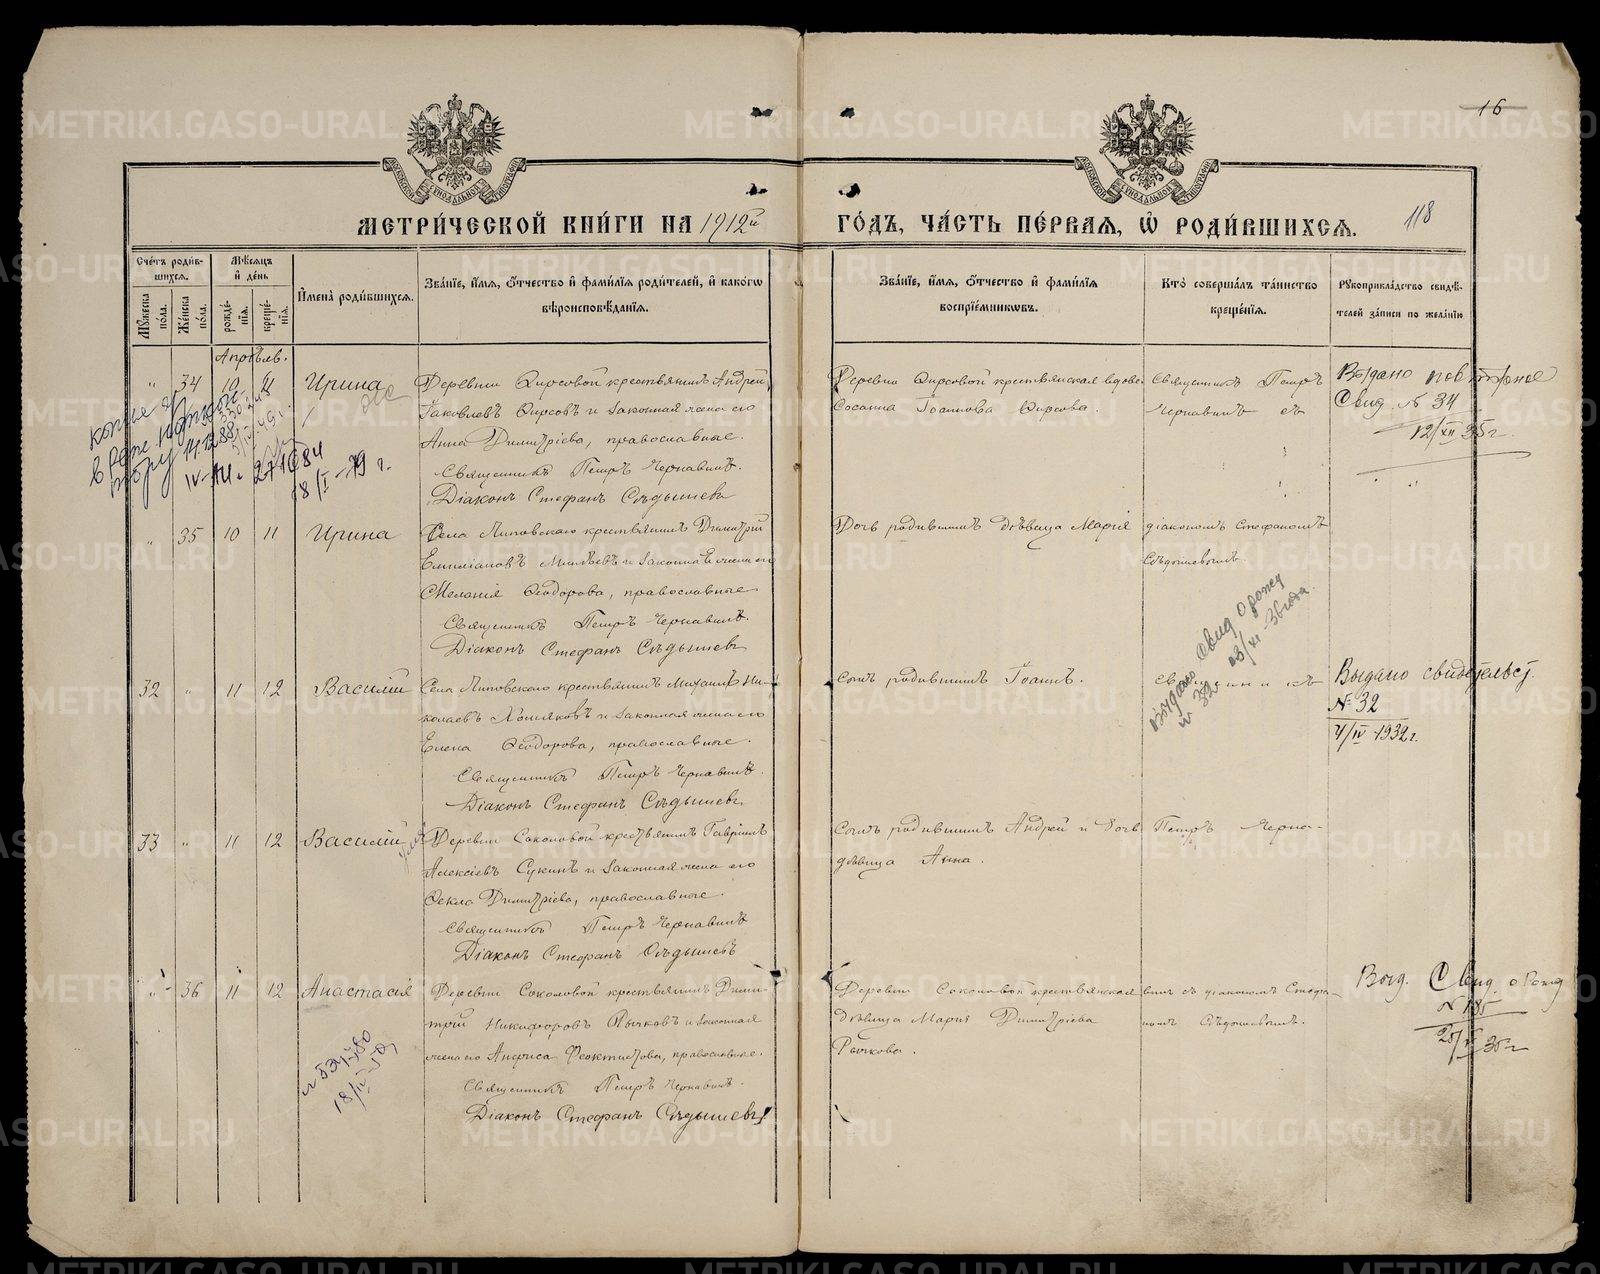 16
118
МЕТРИ́ЧЕСКОЙ КНИ́ГИ НА 1912й ГО́ДЪ, ЧА́СТЬ ПЕ́РВАѦ, Ѡ҆ РОДИ́ВШИХСѦ.
Сче́тъ роди́в-
шихсѧ.
Мѣ́сѧцъ
и҆ де́нь
Мꙋ́жеска
по́ла.
Же́нска
по́ла.
рожде́-
нїѧ.
креще́-
нїѧ.
И҆мена̀ роди́вшихсѧ.
Зва́нїе, и҆́мѧ, ѻ҆́тчество и҆ фами́лїѧ роди́телей, и҆ како́гѡ
вѣроисповѣ́данїѧ.
Зва́нїе, и҆́мѧ, ѻ҆́тчество и҆ фами́лїѧ
воспрїе́мникѡвъ.
Кто̀ соверша́лъ та́инство
креще́нїѧ.
Рꙋкоприкла́дство свидѣ́-
телей за́писи по жела́нїю
Апрѣль.
" 34 10 11 Ирина
Деревни Ѳирсовой крестьянинъ Андрей
Іаковлевъ Ѳирсовъ и законная жена его
Анна Димитріева, православные.
Священникъ Петръ Чернавинъ.
Діаконъ Стефанъ Сѣдышевъ
Деревни Ѳирсовой крестьянская вдова
Сосанна Іоаннова Ѳирсова.
Священникъ Петръ
Чернавинъ съ
Выдано повторное
Свид. № 34
12/XII 35г.
копие
IV-АИ № 271684
18/I-79 г.
" 35 10 11 Ирина
Села Липовскаго крестьянинъ Димитрій
Емиліановъ и законная жена его
Меланія Ѳеодорова, православные
Священникъ Петръ Чернавинъ.
Діаконъ Стефанъ Сѣдышевъ
Дочь родившихъ дѣвица Марія
діакономъ Стефаномъ
Сѣдышевымъ.
Выдано Свид. о рожд
№ 32
32 " 11 12 Василій
Села Липовскаго крестьянинъ Михаилъ Ни-
колаевъ Хомяковъ и законная жена его
Елена Ѳеодорова, православные.
Священникъ Петръ Чернавинъ.
Діаконъ Стефанъ Сѣдышевъ.
Сынъ родившихъ Іоаннъ.
Священникъ
Выдано свидетельст.
№ 32
4/IV-1932г.
33 " 11 12 Василій
Деревни Соколовой крестьянинъ Гавріилъ
Алексіевъ Сукинъ и законная жена его
Ѳекла Димитріева, православные.
Священникъ Петръ Чернавинъ
Діаконъ Стефанъ Сѣдышевъ
Сынъ родившихъ Андрей и дочь
дѣвица Анна.
Петръ Черна-
" 36 11 12 Анастасія
Деревни Соколовой крестьянинъ Дими-
трій Никифоровъ Рычковъ и законная
жена его Анфиса Феоктистова, православные.
Священникъ Петръ Чернавинъ.
Діаконъ Стефанъ Сѣдышевъ
Деревни Соколовой крестьянская
дѣвица Марія Димитріева
Рычкова.
винъ съ діакономъ Стефа-
номъ Сѣдышевымъ.
Выд. Свид. о рожд
№ 185
METRIKI.GASO-URAL.RU